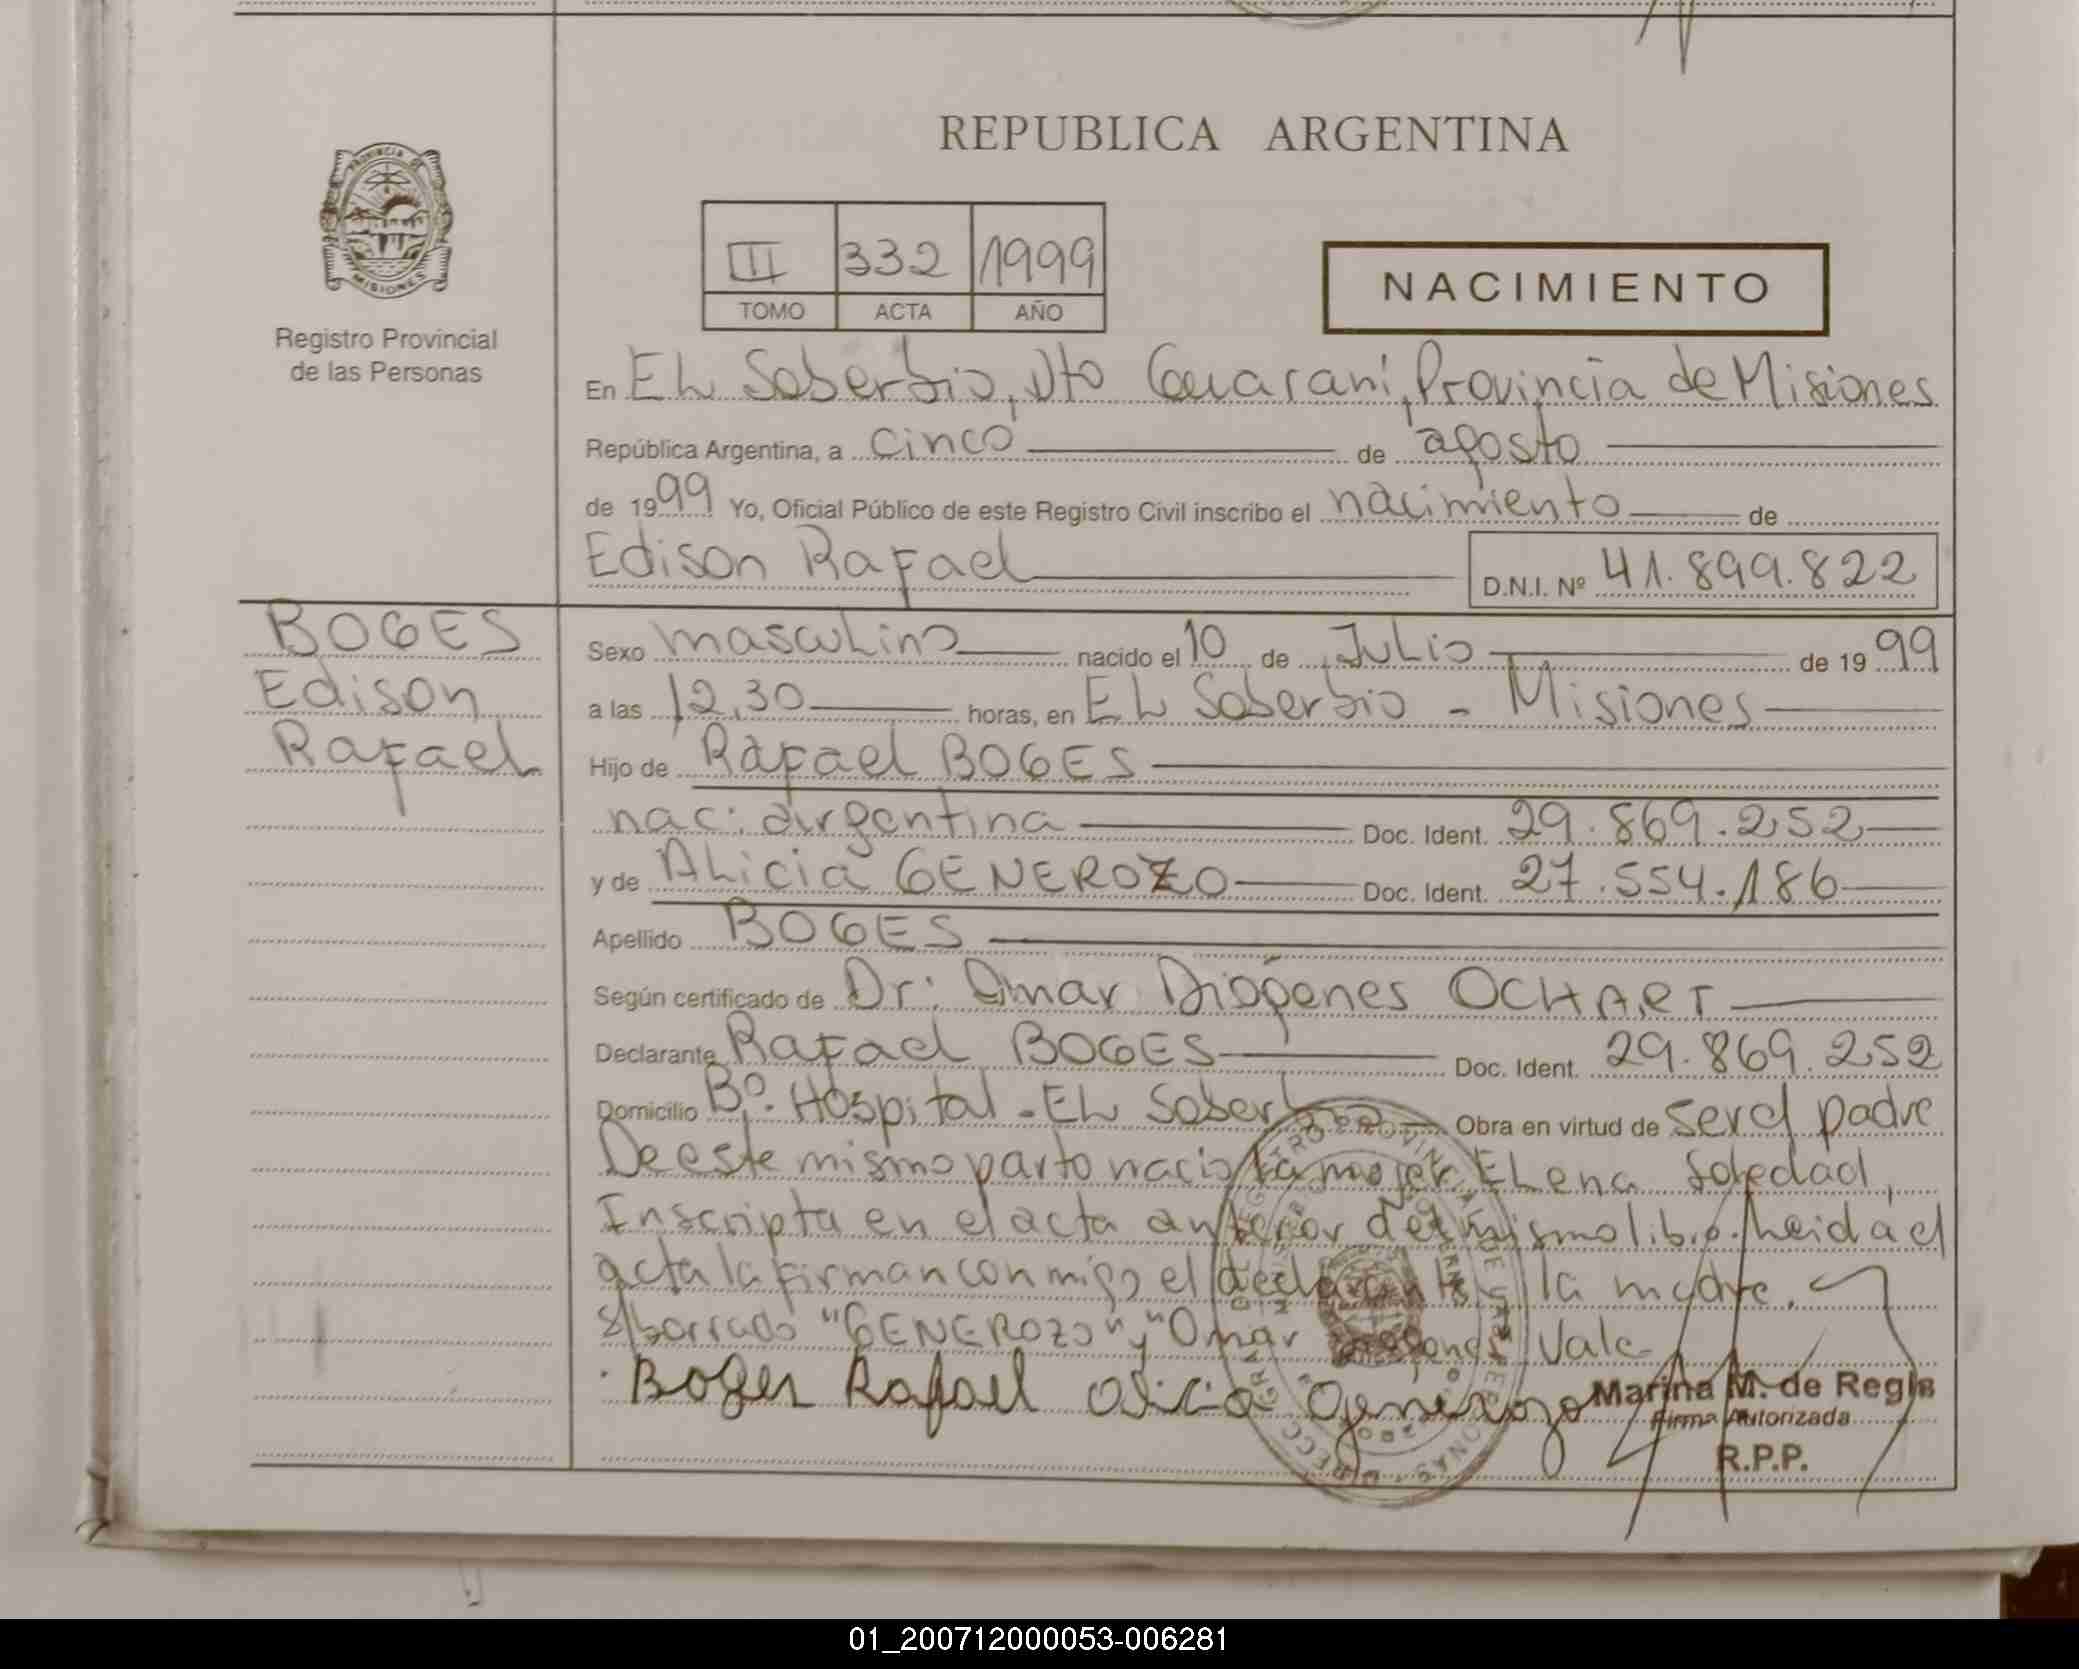 REPUBLICA ARGENTINA
PROVINCIA DE
MISIONES
Registro Provincial
de las Personas
II 332 1999
TOMO ACTA AÑO
NACIMIENTO
En EL Soberbio, Dto Guaraní, Provincia de Misiones
República Argentina, a cinco de agosto
de 1999 Yo, Oficial Público de este Registro Civil inscribo el nacimiento de
Edison Rafael D.N.I. Nº 41.899.822
BOGES
Edison
Rafael
Sexo masculino nacido el 10 de Julio de 1999
a las 12,30 horas, en EL Soberbio - Misiones
Hijo de Rafael BOGES
nac: argentina Doc. Ident. 29.869.252
y de ALicia GENEROZO Doc. Ident. 27.554.186
Apellido BOGES
Según certificado de Dr: Omar Diógenes OCHART
Declarante Rafael BOGES Doc. Ident. 29.869.252
Domicilio Bº. Hospital - EL Soberbio Obra en virtud de ser el padre
De este mismo parto nacio la mujer ELena Soledad,
Inscripta en el acta anterior del mismo libro. Leida el
acta la firman conmigo el declarante y la madre.
S/borrado "GENEROZO" y "Omar Diógenes" Vale
Boges Rafael Alicia Generozo
Marina M. de Regis
Firma Autorizada
R.P.P.
01_200712000053-006281